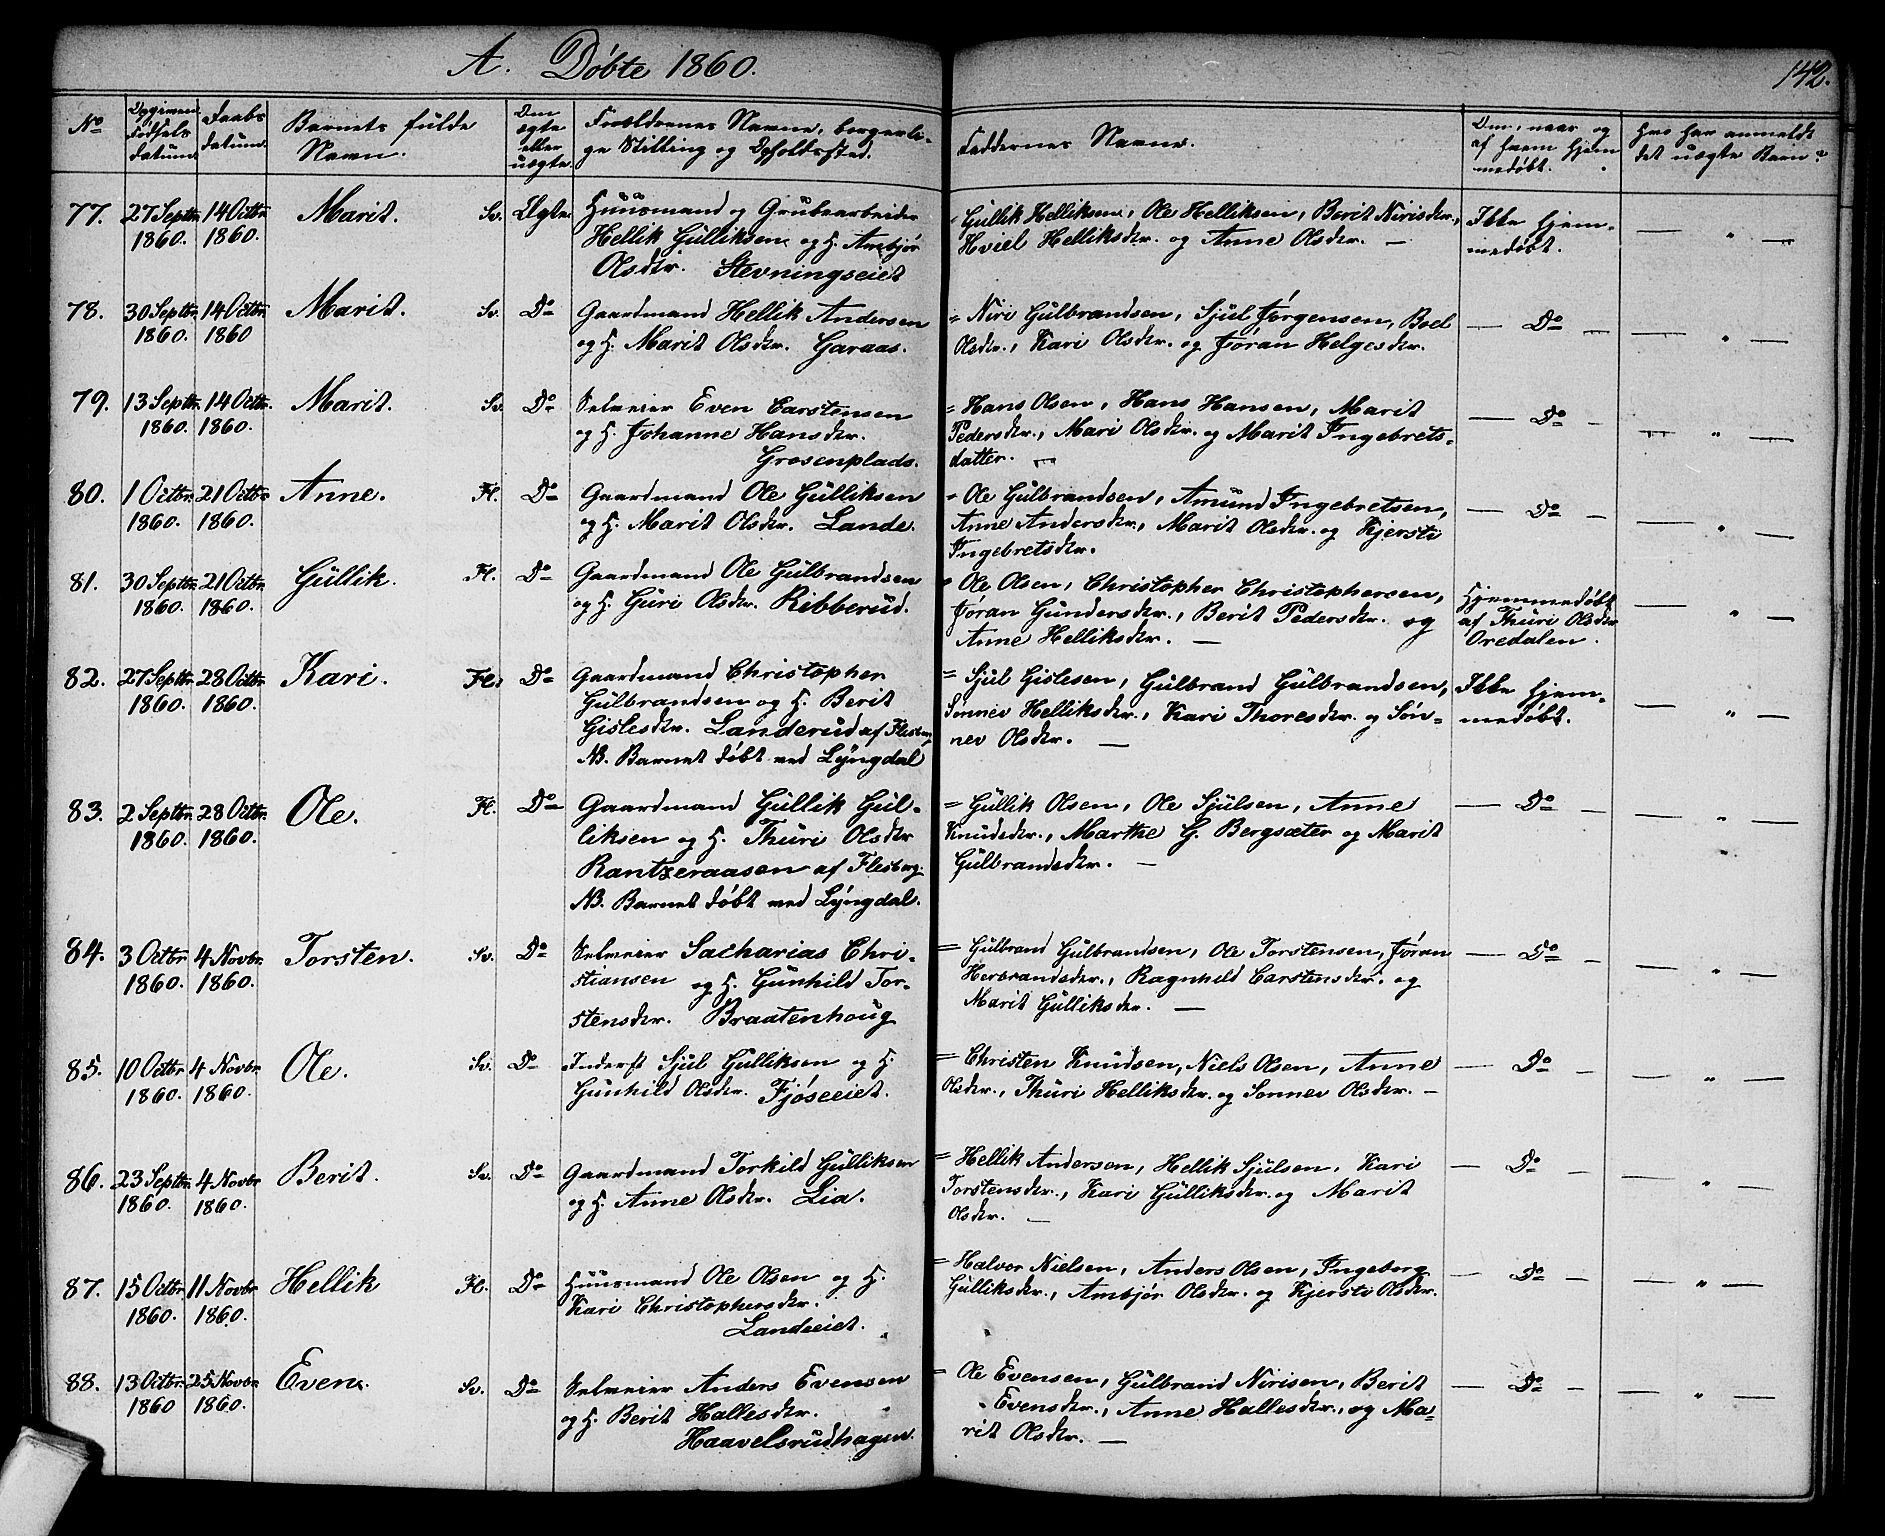 A. Døbte 1860.
142.
No
Opgivne Fødsels datum.
Daabs datum.
Barnets fulde Navn.
Om ægte eller uægte.
Forældrenes Navne, borgerlige Stilling og Opholdssted.
Faddernes Navne.
Om, naar og af hvem hjemmedøbt.
Hvo har anmeldt det uægte Barn?
77. 27 Septbr. 1860. 14 Octbr. 1860. Marit. Sv. Ægte
Huusmand og Grubearbeider
Hellik Gulliksen og H. Ambjør
Olsdtr. Stevningseiet
= Gullik Helliksen, Ole Helliksen, Berit Nirisdtr.,
Hviel Helliksdtr. og Anne Olsdtr. —
Ikke hjem-
medøbt.
— " —
78. 30 Septbr. 1860. 14 Octbr. 1860 Marit. Sv. Do
Gaardmand Hellik Andersen
og H. Marit Olsdtr. Garaas.
= Niri Gulbrandsen, Sjul Jørgensen, Boel
Olsdtr., Kari Olsdtr. og Jøran Helgesdtr.
— Do —
— " —
79. 13 Septbr. 1860. 14 Octbr. 1860. Marit. Sv. Do
Selveier Even Carstensen
og H. Johanne Hansdtr.
Grosenplads.
= Hans Olsen, Hans Hansen, Marit
Pedersdtr., Mari Olsdtr. og Marit Ingebrets-
datter. —
— Do —
— " —
80. 1 Octbr. 1860. 21 Octbr. 1860. Anne. Fl. Do
Gaardmand Ole Gulliksen
og H. Marit Olsdtr. Lande.
= Ole Gulbrandsen, Amund Ingebretsen,
Anne Andersdtr., Marit Olsdtr. og Kjersti
Ingebretsdtr.
— Do —
— " —
81. 30 Septbr. 1860. 21 Octbr. 1860. Gullik. Fl. Do
Gaardmand Ole Gulbrandsen
og H. Guri Olsdtr. Ribberud.
= Ole Olsen, Christopher Christophersen,
Jøran Gundersdtr., Berit Pedersdtr. og
Anne Helliksdtr. —
Hjemmedøbt
af Thuri Olsdtr
Oredalen.
— " —
82. 27 Septbr. 1860. 28 Octbr. 1860. Kari. Fl. Do
Gaardmand Christopher
Gulbrandsen og H. Berit
Gislesdtr. Landerud af Flesberg
NB. Barnet døbt ved Lyngdal
= Sjul Gislesen, Gulbrand Gulbrandsen,
Sønnev Helliksdtr., Kari Thoresdtr. og Søn-
nev Olsdtr. —
Ikke hjem-
medøbt.
— " —
83. 2 Septbr. 1860. 28 Octbr. 1860. Ole. Fl. Do
Gaardmand Gullik Gul-
liksen og H. Thuri Olsdtr
Rantzeraasen af Flesberg.
NB. Barnet døbt ved Lyngdal.
= Gullik Olsen, Ole Sjulsen, Anne
Knudsdtr., Marthe G. Bergsæter og Marit
Gulbrandsdtr. —
— Do —
— " —
84. 3 Octbr 1860. 4 Novbr. 1860. Torsten. Sv. Do
Selveier Sacharias Chri-
stiansen og H. Gunhild Tor-
stensdtr. Braatenhoug
= Gulbrand Gulbrandsen, Ole Torstensen, Jøran
Herbrandsdtr., Ragnhild Carstensdtr. og
Marit Gulliksdtr. —
— Do —
— " —
85. 10 Octbr 1860. 4 Novbr. 1860. Ole. Sv. Do
Inderst Sjul Gulliksen og H.
Gunhild Olsdtr. Fjøseeiet.
= Christen Knudsen, Niels Olsen, Anne
Olsdtr., Thuri Helliksdtr. og Sønnev Olsdtr. —
— Do —
— " —
86. 23 Septbr. 1860. 4 Novbr. 1860. Berit. Sv. Do
Gaardmand Torkild Gulliksen
og H. Anne Olsdtr. Lia.
= Hellik Andersen, Hellik Sjulsen, Kari
Torstensdtr., Kari Gulliksdtr. og Marit
Olsdtr. —
— Do —
— " —
87. 15 Octbr. 1860. 11 Novbr. 1860. Hellik Fl. Do
Huusmand Ole Olsen og H.
Kari Christophersdtr.
Landeeiet.
= Halvor Nielsen, Anders Olsen, Ingeborg
Gulliksdtr., Ambjør Olsdtr. og Kjersti Olsdtr.
— Do —
— " —
88. 13 Octbr. 1860 25 Novbr. 1860. Even. Sv. Do
Selveier Anders Evensen
og H. Berit Hallesdtr.
Haavelsrudhagen.
= Ole Evensen, Gulbrand Nirisen, Berit
Evensdtr., Anne Hallesdtr., og Ma-
rit Olsdtr. —
— Do —
— " —